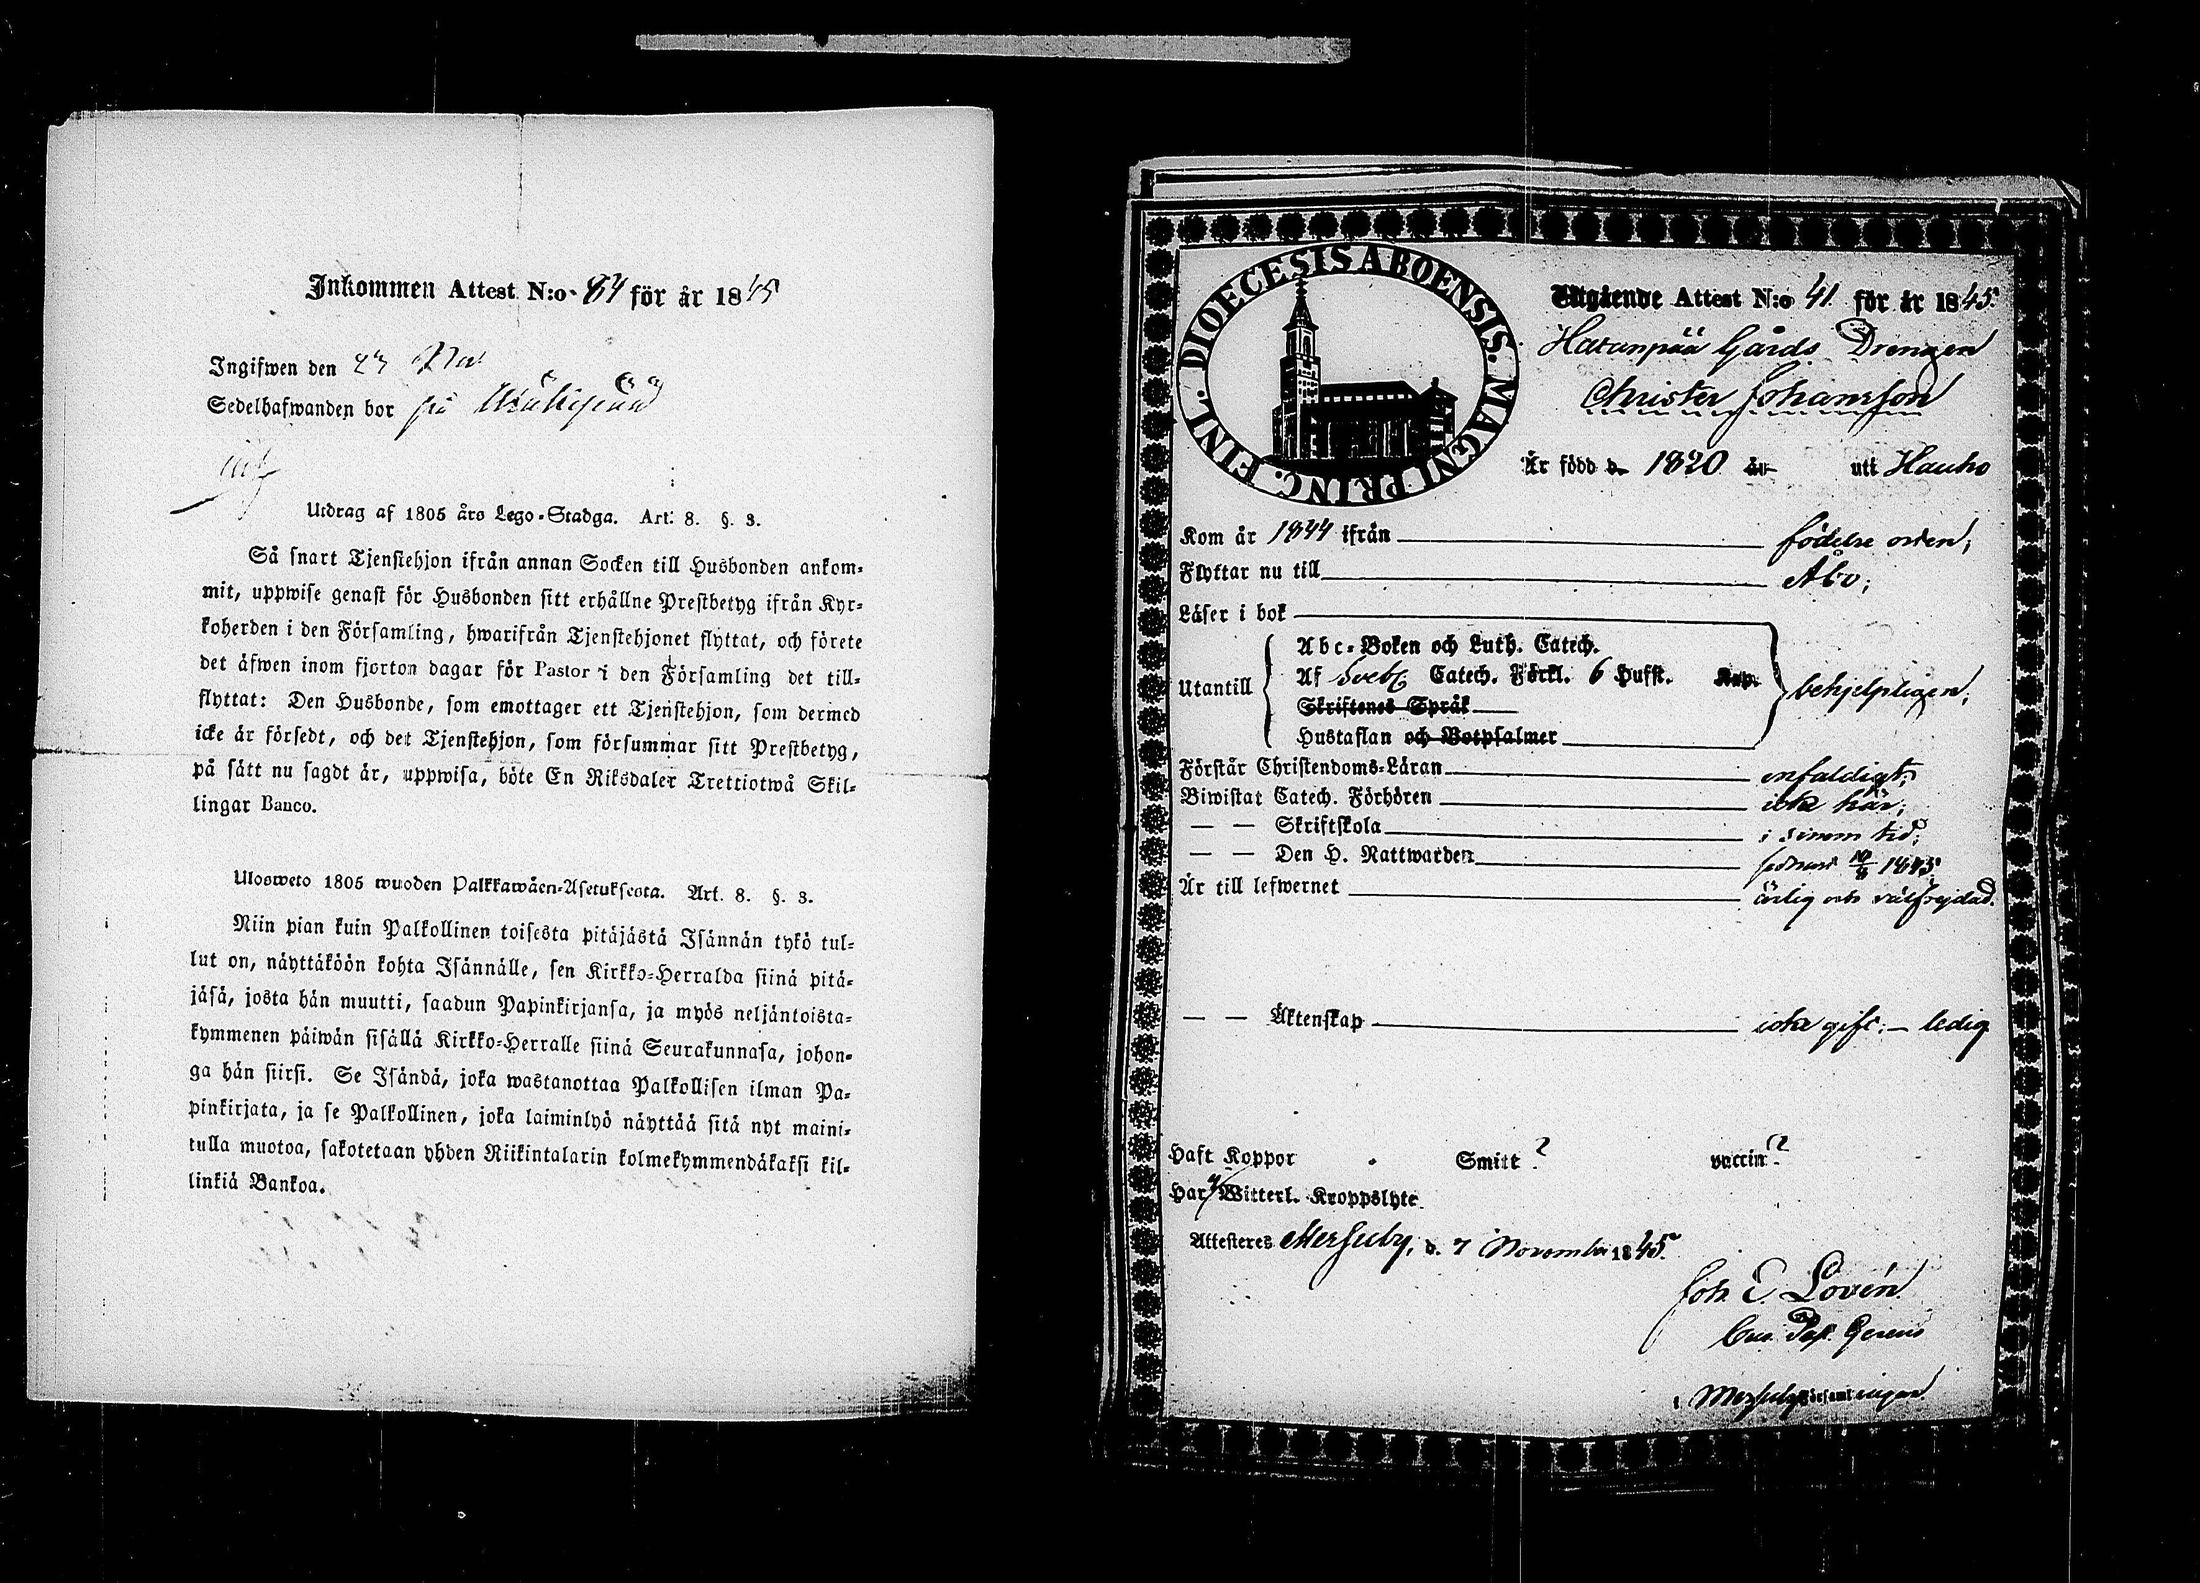 Inkommen Attest N:o 84 för år 1845
Ingifwen den 23 Nov
Sedelhafwanden bor på
Utdrag af 1805 års Lego-Stadga. Art: 8. §. 3.
Så snart Tjenstehjon ifrån annan Socken till Husbonden ankom-
mit, uppwise genast för Husbonden sitt erhållne Prestbetyg ifrån Kyr-
koherden i den Församling, hwarifrån Tjenstehjonet flyttat, och förete
det äfwen inom fjorton dagar för Pastor i den Församling det till-
flyttat: Den Husbonde, som emottager ett Tjenstehjon, som dermed
icke är försedt, och det Tjenstehjon, som försummar sitt Prestbetyg,
på sätt nu sagdt är, uppwisa, böte En Riksdaler Trettiotwå Skil-
lingar Banco.
Ulosweto 1805 wuoden Palkkawäen-Asetuksesta. Art. 8. §. 3.
Niin pian kuin Palkollinen toisesta pitäjästä Isännän tykö tul-
lut on, näyttäköön kohta Isännälle, sen Kirkko-Herralda siinä pitä-
jäsä, josta hän muutti, saadun Papinkirjansa, ja myös neljäntoista-
kymmenen päiwän sisällä Kirkko-Herralle siinä Seurakunnasa, johon-
ga hän siirsi. Se Isändä, joka wastanottaa Palkollisen ilman Pa-
pinkirjata, ja se Palkollinen, joka laiminlyö näyttää sitä nyt maini-
tulla muotoa, sakotetaan yhden Riikintalarin kolmekymmendäkaksi kil-
linkiä Bankoa.
DIOECESIS ABOENSIS. MAGNI PRINC. FINL.
Utgående Attest N:o 41 för år 1845.
Hatanpää Gårds Drengen
Christer Johansson
Är född d. 1820 år uti Hauho
Kom år 1844 ifrån födelse orten;
Flyttar nu till Åbo;
Läser i bok
Utantill
Abc-Boken och Luth. Catech.
Af Sveb. Catech. Förkl. 6 Hufst. Kap.
Skriftenes Språk
Hustaflan och Botpsalmer
behjelpligen;
Förstår Christendoms-Läran enfaldigt;
Biwistat Catech. Förhören icke här;
— — Skriftskola i sinom tid;
— — Den H. Nattwarden 1845
Är till lefwernet ärlig och välfrejdad.
— — Äktenskap icke gift; – ledig
Haft Koppor Smitt? vaccin?
Har Witterl. Kroppslyte
Attesteres Messuby, d. 7 November 1845.
Joh. E. Lovén
i Messuby Församlingar.